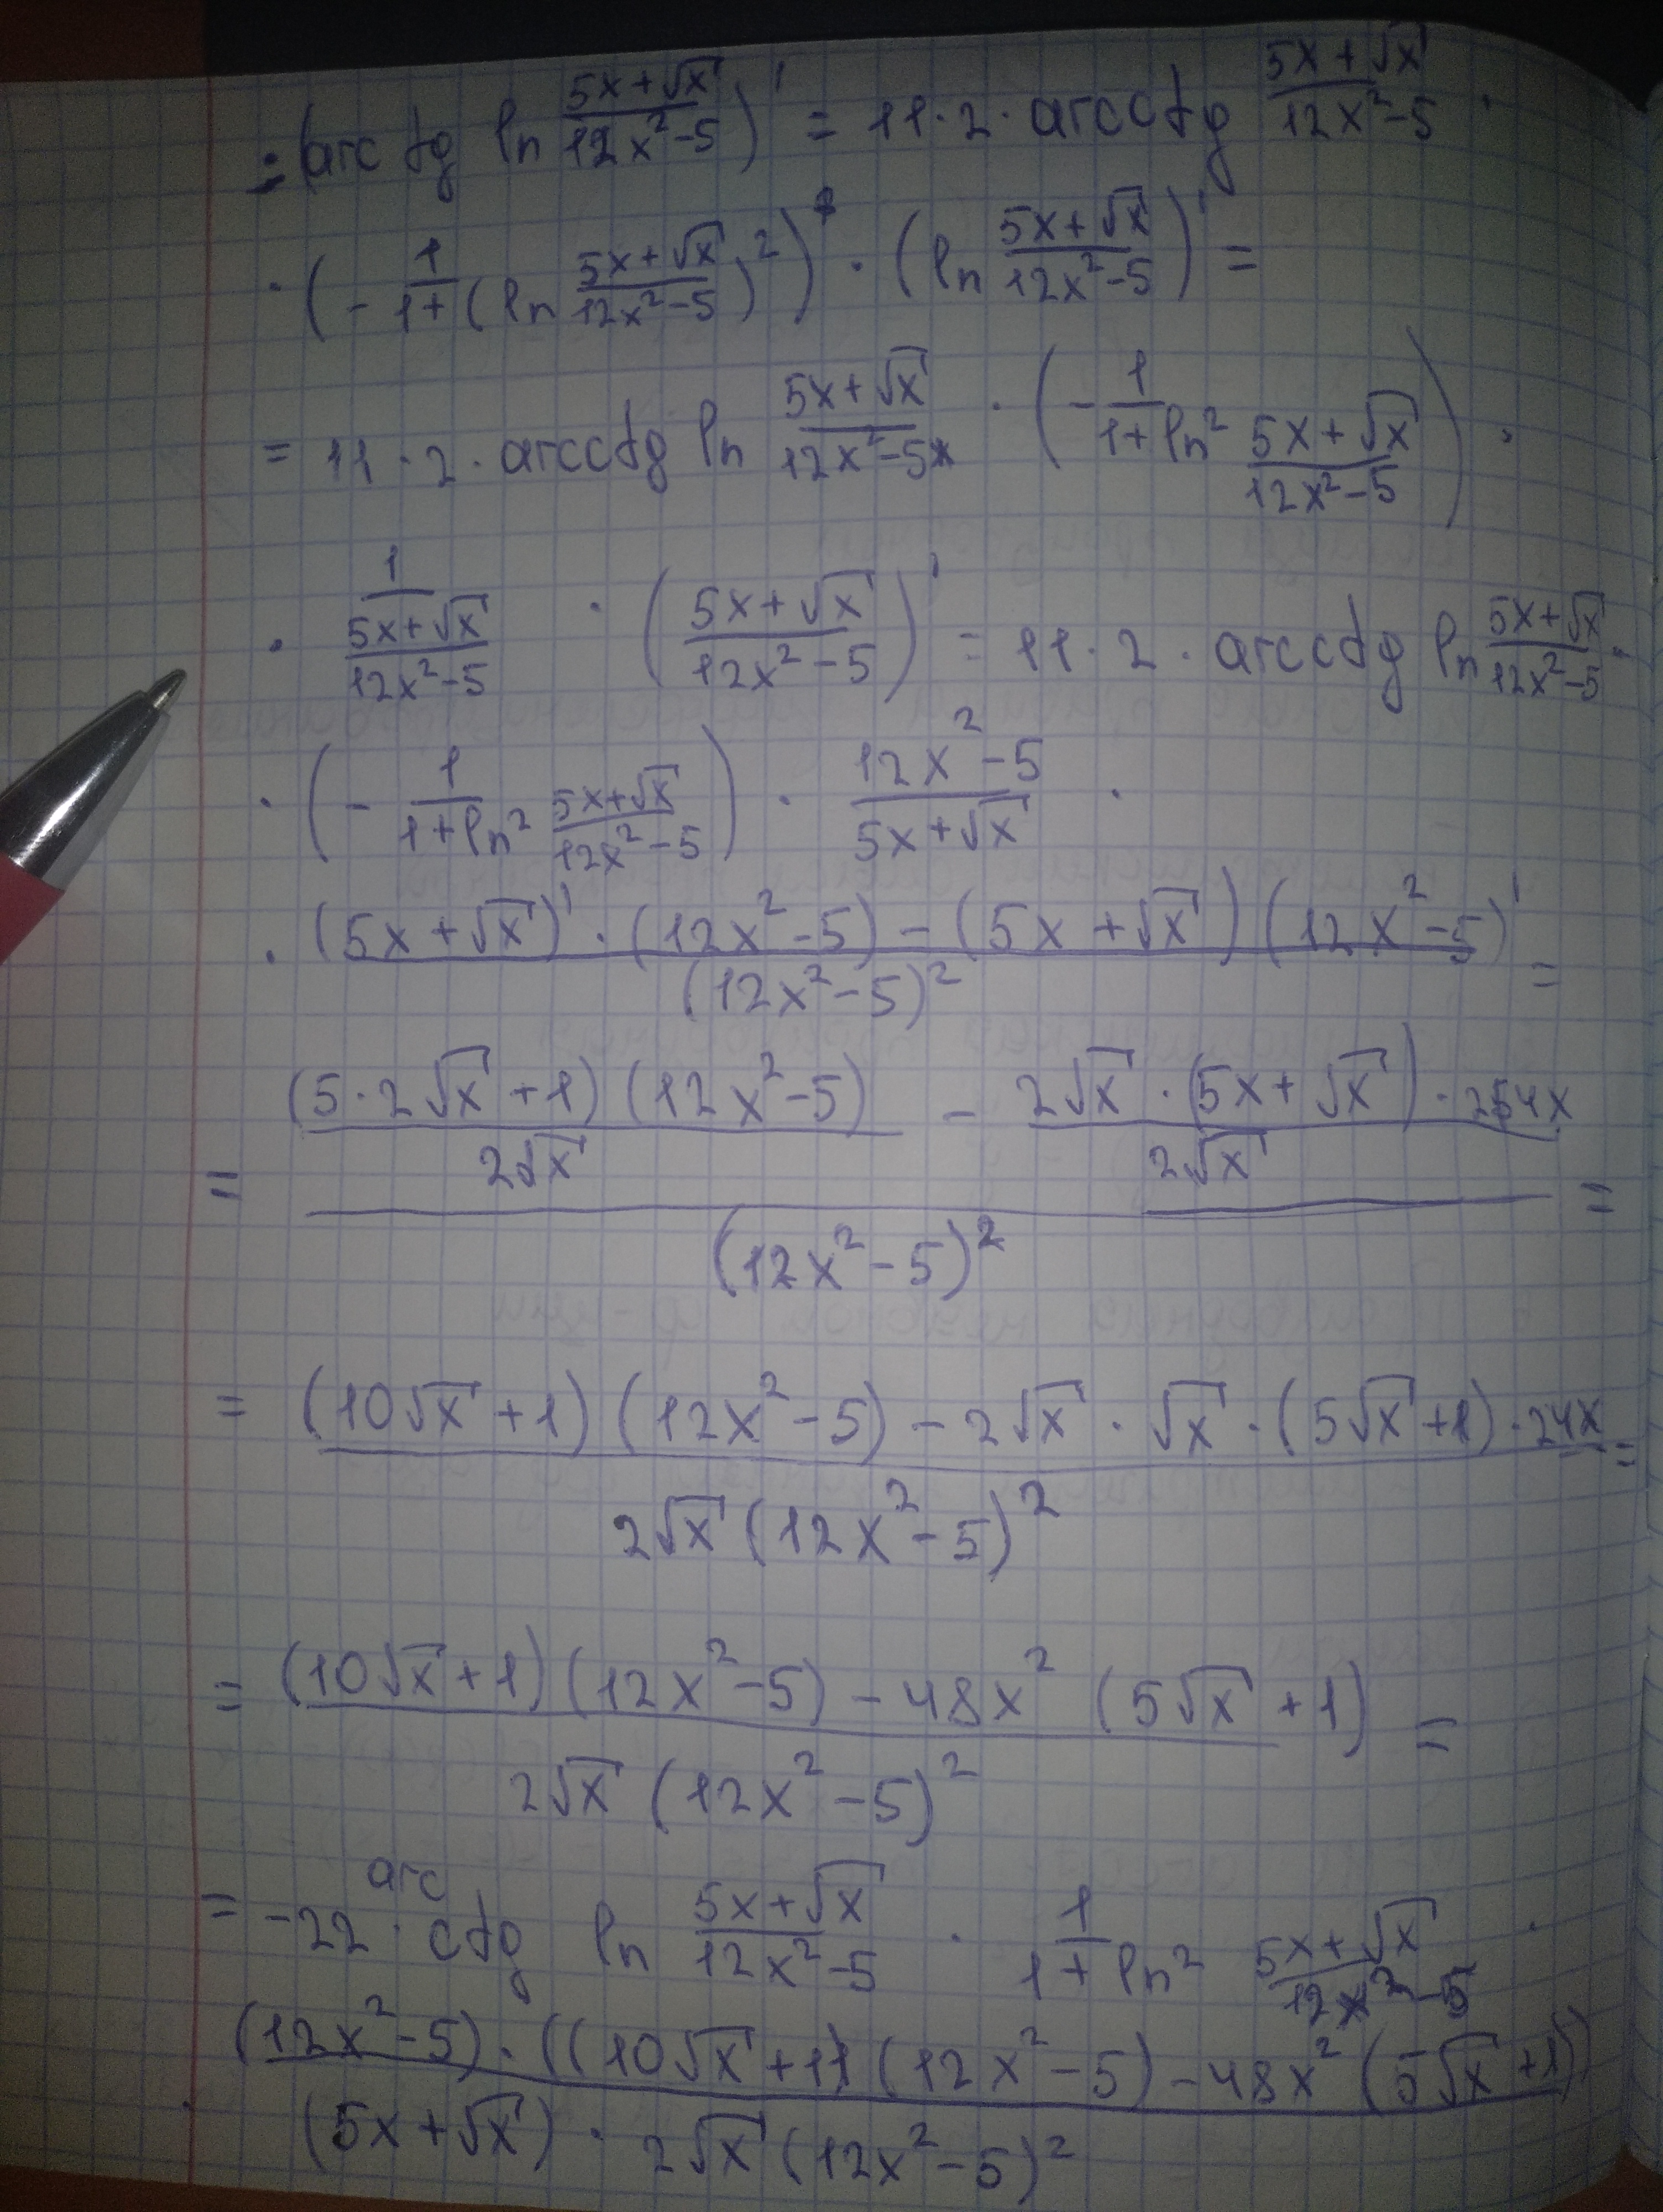 = (arcctg ln (5x+√x)/(12x²-5))' = 11·2·arcctg (5x+√x)/(12x²-5) ·
· (- 1/(1+(ln (5x+√x)/(12x²-5))²)) · (ln (5x+√x)/(12x²-5))' =
= 11·2·arcctg ln (5x+√x)/(12x²-5) · (- 1/(1+ln² (5x+√x)/(12x²-5))) ·
· 1/((5x+√x)/(12x²-5)) · ((5x+√x)/(12x²-5))' = 11·2·arcctg ln (5x+√x)/(12x²-5) ·
· (- 1/(1+ln² (5x+√x)/(12x²-5))) · (12x²-5)/(5x+√x) ·
· ((5x+√x)'·(12x²-5) - (5x+√x)(12x²-5)')/(12x²-5)² =
= ((5·2√x+1)(12x²-5)/(2√x) - 2√x·(5x+√x)·24x/(2√x))/(12x²-5)² =
= ((10√x+1)(12x²-5) - 2√x·√x·(5√x+1)·24x)/(2√x(12x²-5)²) =
= ((10√x+1)(12x²-5) - 48x²(5√x+1))/(2√x(12x²-5)²) =
= -22·arcctg ln (5x+√x)/(12x²-5) · 1/(1+ln² (5x+√x)/(12x²-5)) ·
· ((12x²-5)·((10√x+1)(12x²-5) - 48x²(5√x+1)))/((5x+√x)·2√x(12x²-5)²)